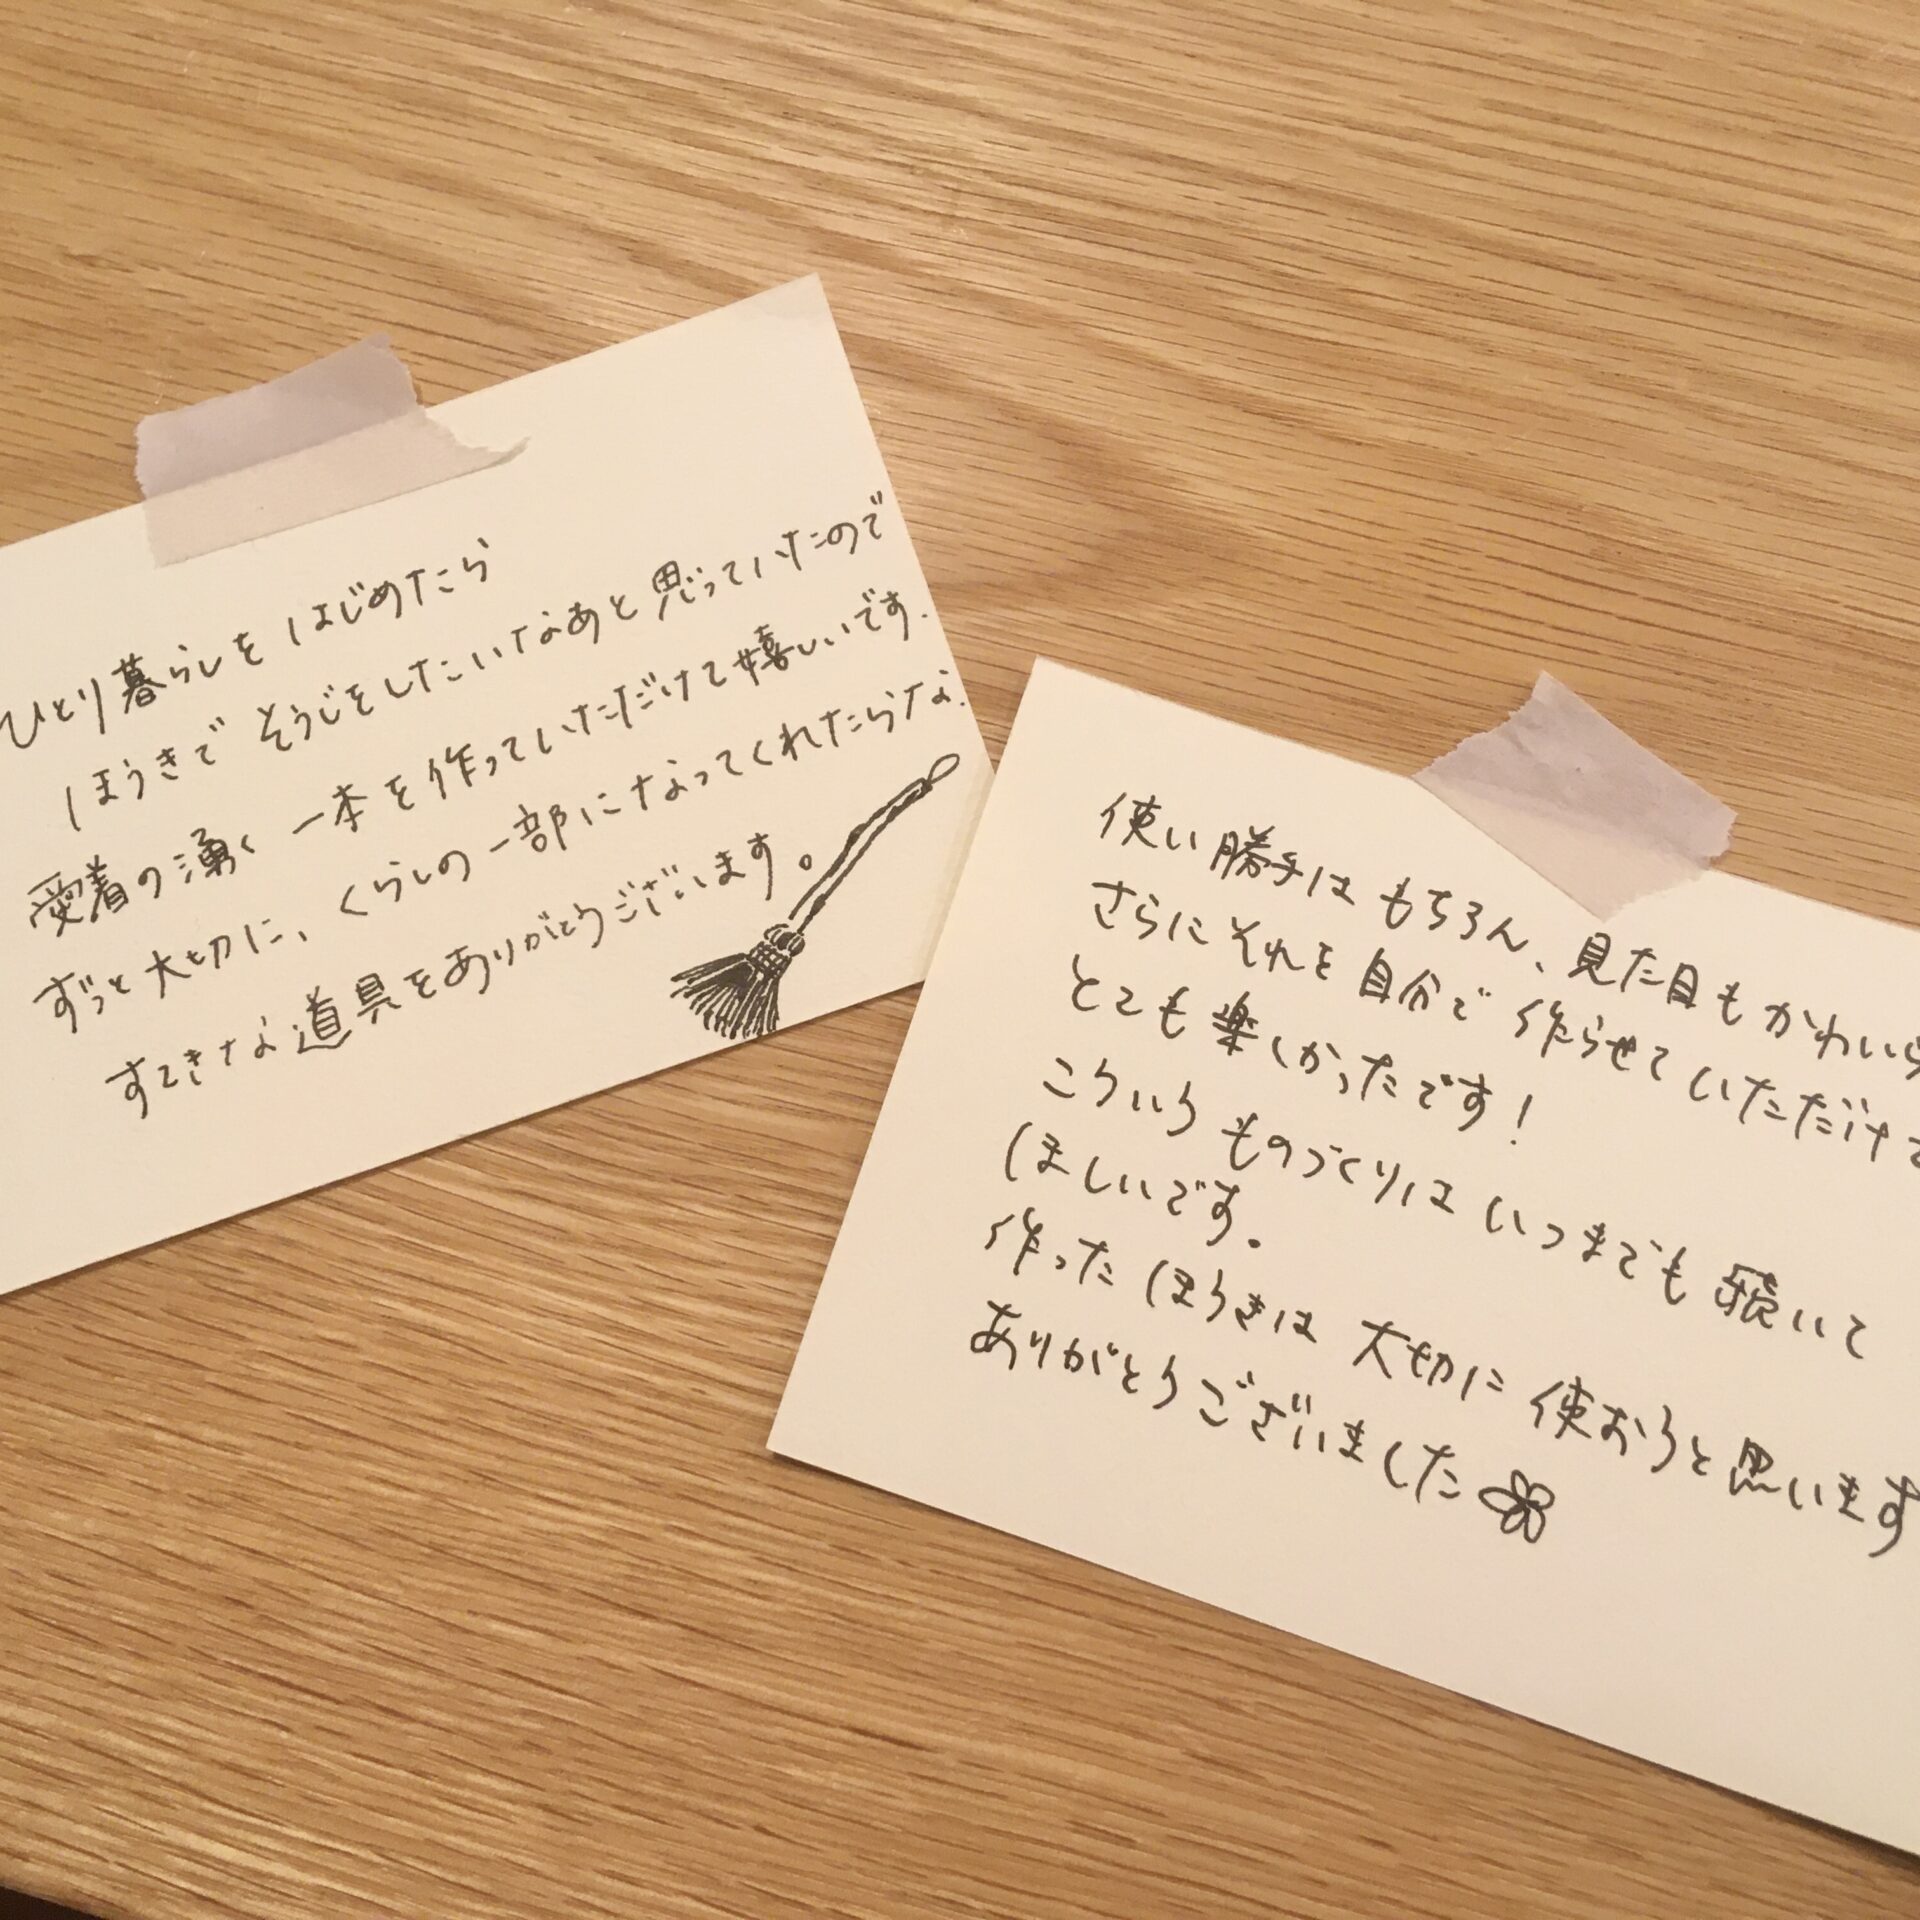 ひとり暮らしを はじめたら
ほうきで そうじをしたいなあと思っていたので
愛着の湧く 一本を作っていただけて嬉しいです.
ずっと大切に、くらしの一部になってくれたらな.
すてきな道具をありがとうございます。
使い勝手は もちろん、見た目も かわいら
さらにそれを 自分で 作らせて いただけて
とても 楽しかったです!
こういう ものづくりは いつまでも 続いて
ほしいです。
作った ほうきは 大切に 使おうと 思います
ありがとうございました